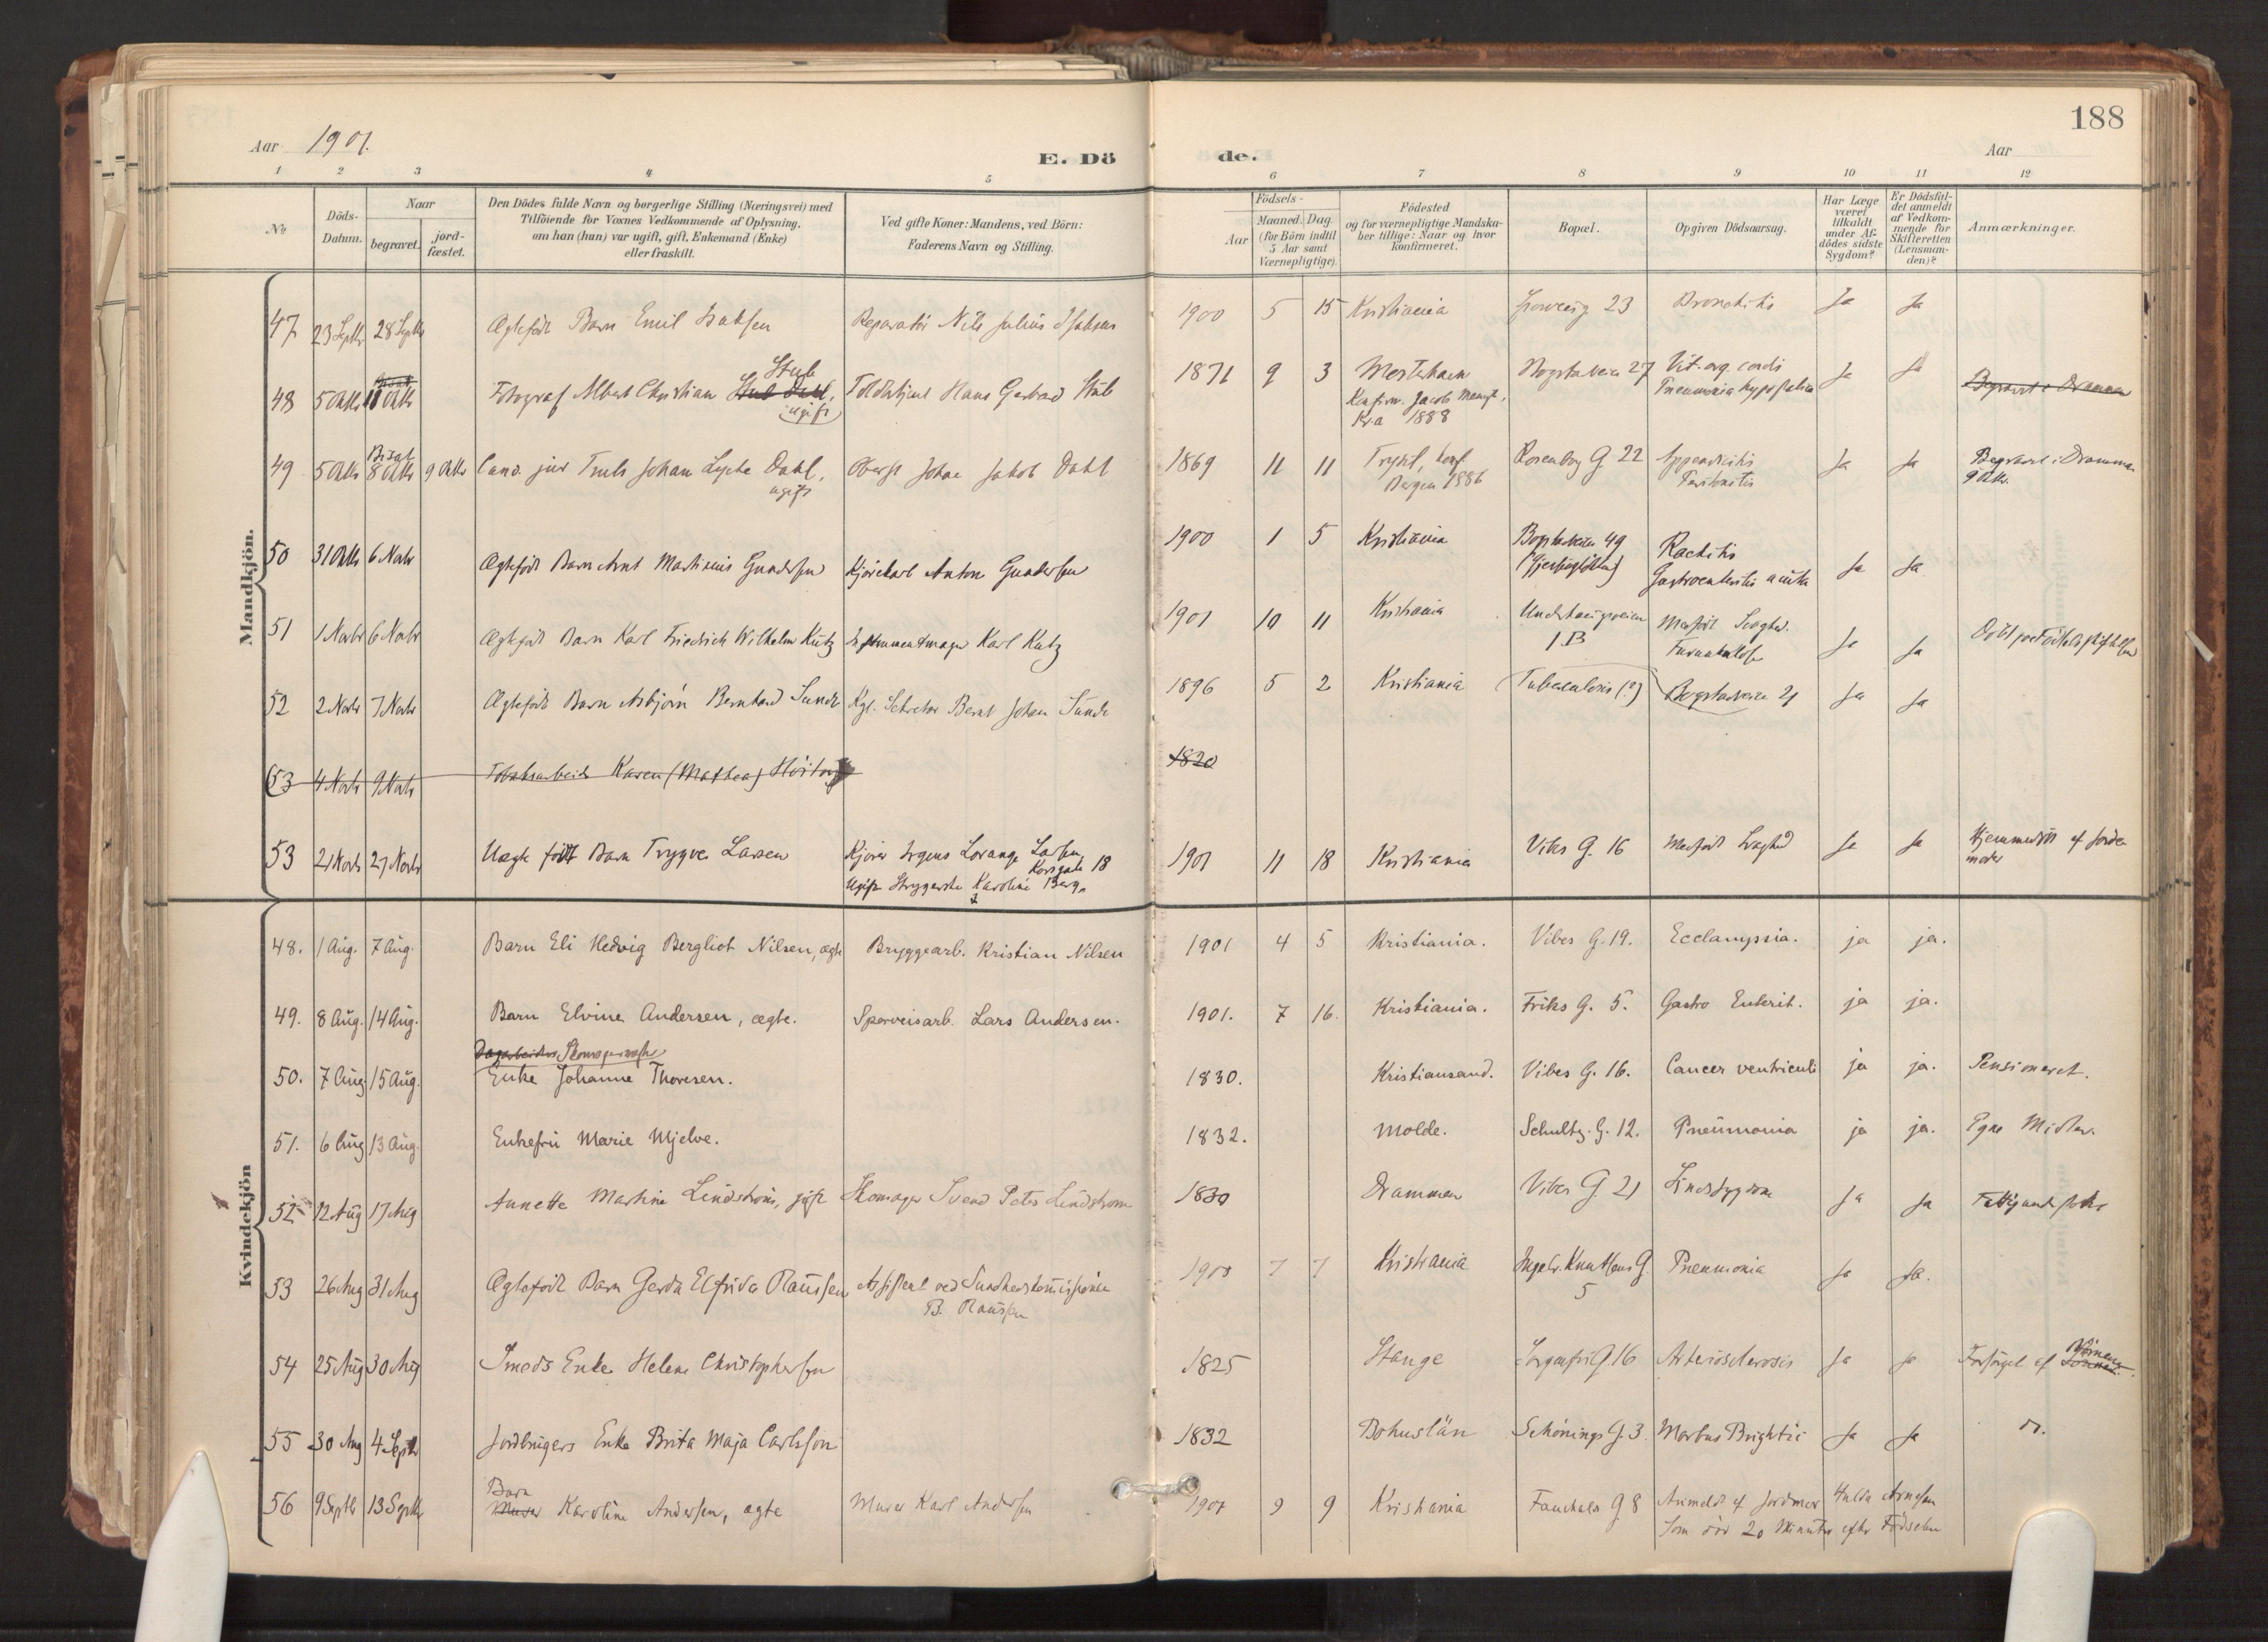 188
Aar 1901.
E. Dö
de.
Aar
1 2 3 4 5 6 7 8 9 10 11 12
No
Döds-Datum.
Naar
begravet.
jord-fæstet.
Den Dödes fulde Navn og borgerlige Stilling (Næringsvei) med
Tilföiende for Voxnes Vedkommende af Oplysning,
om han (hun) var ugift, gift, Enkemand (Enke)
eller fraskilt.
Ved gifte Koner: Mandens, ved Börn:
Faderens Navn og Stilling.
Födsels-
Aar
Maaned. Dag.
(for Börn indtil
5 Aar samt
Værnepligtige).
Födested
og for værnepligtige Mandska-
ber tillige: Naar og hvor
konfirmeret.
Bopæl.
Opgiven Dödsaarsag.
Har Læge
været
tilkaldt
under Af-
dödes sidste
Sygdom?
Er Dödsfal-
det anmeldt
af Vedkom-
mende for
Skifteretten
(Lensman-
den)?
Anmærkninger.
Mandkjön.
47 23 Septbr 28 Septbr Ægtefödt Barn Emil Isaksen Reparatör Nils Julius Isaksen 1900 5 15 Kristiania 23 Bronchitis Ja Ja
48 5 Oktbr 11 Oktbr Fotograf Albert Christian Stub Dahl, Stub ugift Toldbetjent Hans Gerhard Stub 1871 9 3 Konfirm. Jacob Menigh. Kr.a 1888 Bogstadveien 27 Vit. org. cordis Pneumonia hypostatica Ja Ja Begravet i Drammen
49 5 Oktbr Bisat 8 Oktbr 9 Oktbr Cand. jur Truls Johan Lyche Dahl, ugift Oberst Johan Jakob Dahl 1869 11 11 Trysil, konf Bergen 1886 Rosenborg G. 22 Appendicitis Peritonitis Ja Ja Begravet i Drammen 9 Oktbr.
50 31 Oktbr 6 Novbr Ægtefödt Barn Arnt Martinius Gundersen Kjörekarl Anton Gundersen 1900 1 5 Kristiania Bogstadveien 49 Rachitis Gastroenteritis acuta Ja Ja
51 1 Novbr 6 Novbr Ægtefödt Barn Karl Friedrich Wilhelm Kutz Instrumentmager Karl Kutz 1901 10 11 Kristiania 1 B Medfödt Svaghed. Furunkulose Ja Ja Döbt paa Födselsstiftelsen
52 2 Novbr 7 Novbr Ægtefödt Barn Asbjörn Bernhard Sunde Kgl. Sekretær Bernt Johan Sunde 1896 5 2 Kristiania Tuberculosis (?) Bogstadveien 21 Ja Ja
53 4 Novbr 9 Novbr Tobaksarbeider Karen (Mathea) 1820
53 21 Novbr 27 Novbr Uægte födt Barn Trygve Larsen Kjörer Jrgens Lorange Larsen, Korsgade 18 Ugift Strygerske Karoline Berg. 1901 11 18 Kristiania Vibes G. 16 Medfödt Svaghed Ja Ja Hjemmedöbt af Jordemoder
Kvindekjön
48. 1 Aug. 7 Aug. Barn Eli Hedvig Bergliot Nilsen, ægte Bryggearb. Kristian Nilsen 1901 4 5 Kristiania. Vibes G. 19. Ecclampsia. ja ja.
49. 8 Aug. 14 Aug. Barn Elvine Andersen, ægte. Sporveisarb. Lars Andersen. 1901. 7 16. Kristiania. Friks G. 5. Gastro Enterit. ja ja.
50. 7 Aug 15 Aug. Dagarbeiders Skomagersvends Enke Johanne Thoresen. 1830. Kristiansand. Vibes G. 16. Cancer ventriculi ja ja. Pensioneret.
51. 6 Aug 13 Aug. Enkefru Marie Mjelve. 1832. Molde. Schultz. G. 12. Pneumonia ja ja. Egne Midler.
52 12 Aug 17 Aug Annette Martine Lindström, gift Skomager Svend Peter Lindstrom 1830 Drammen Vibes G 21 Sindssygdom Ja Ja Fattigunderst.
53 26 Aug 31 Aug Ægtefödt Barn Gerda Elfrida Paulsen Assistent ved Sundhedskommissionen B. Paulsen 1900 7 7 Kristiania Ingebr. Knutsens G. 5 Pneumonia Ja Ja.
54 25 Aug 30 Aug Smeds Enke Helene Christophersen 1825 Stange Sorgenfri G 16 Arteriosclerosis Ja Ja Forsörget af Sönnen Börnene.
55 30 Aug 4 Septbr Jordbrugers Enke Brita Maja Carlsson 1832 Bohuslän Schönings G. 3. Morbus Brightii Ja Ja D.
56 9 Septbr 13 Septbr Murer Barn Karoline Andersen, ægte Murer Karl Andersen 1901 9 9 Kristiania Fauchalds G 8 Anmeldt af Jordmor Hulda Arnesen Som död 20 Minutter efter Födselen